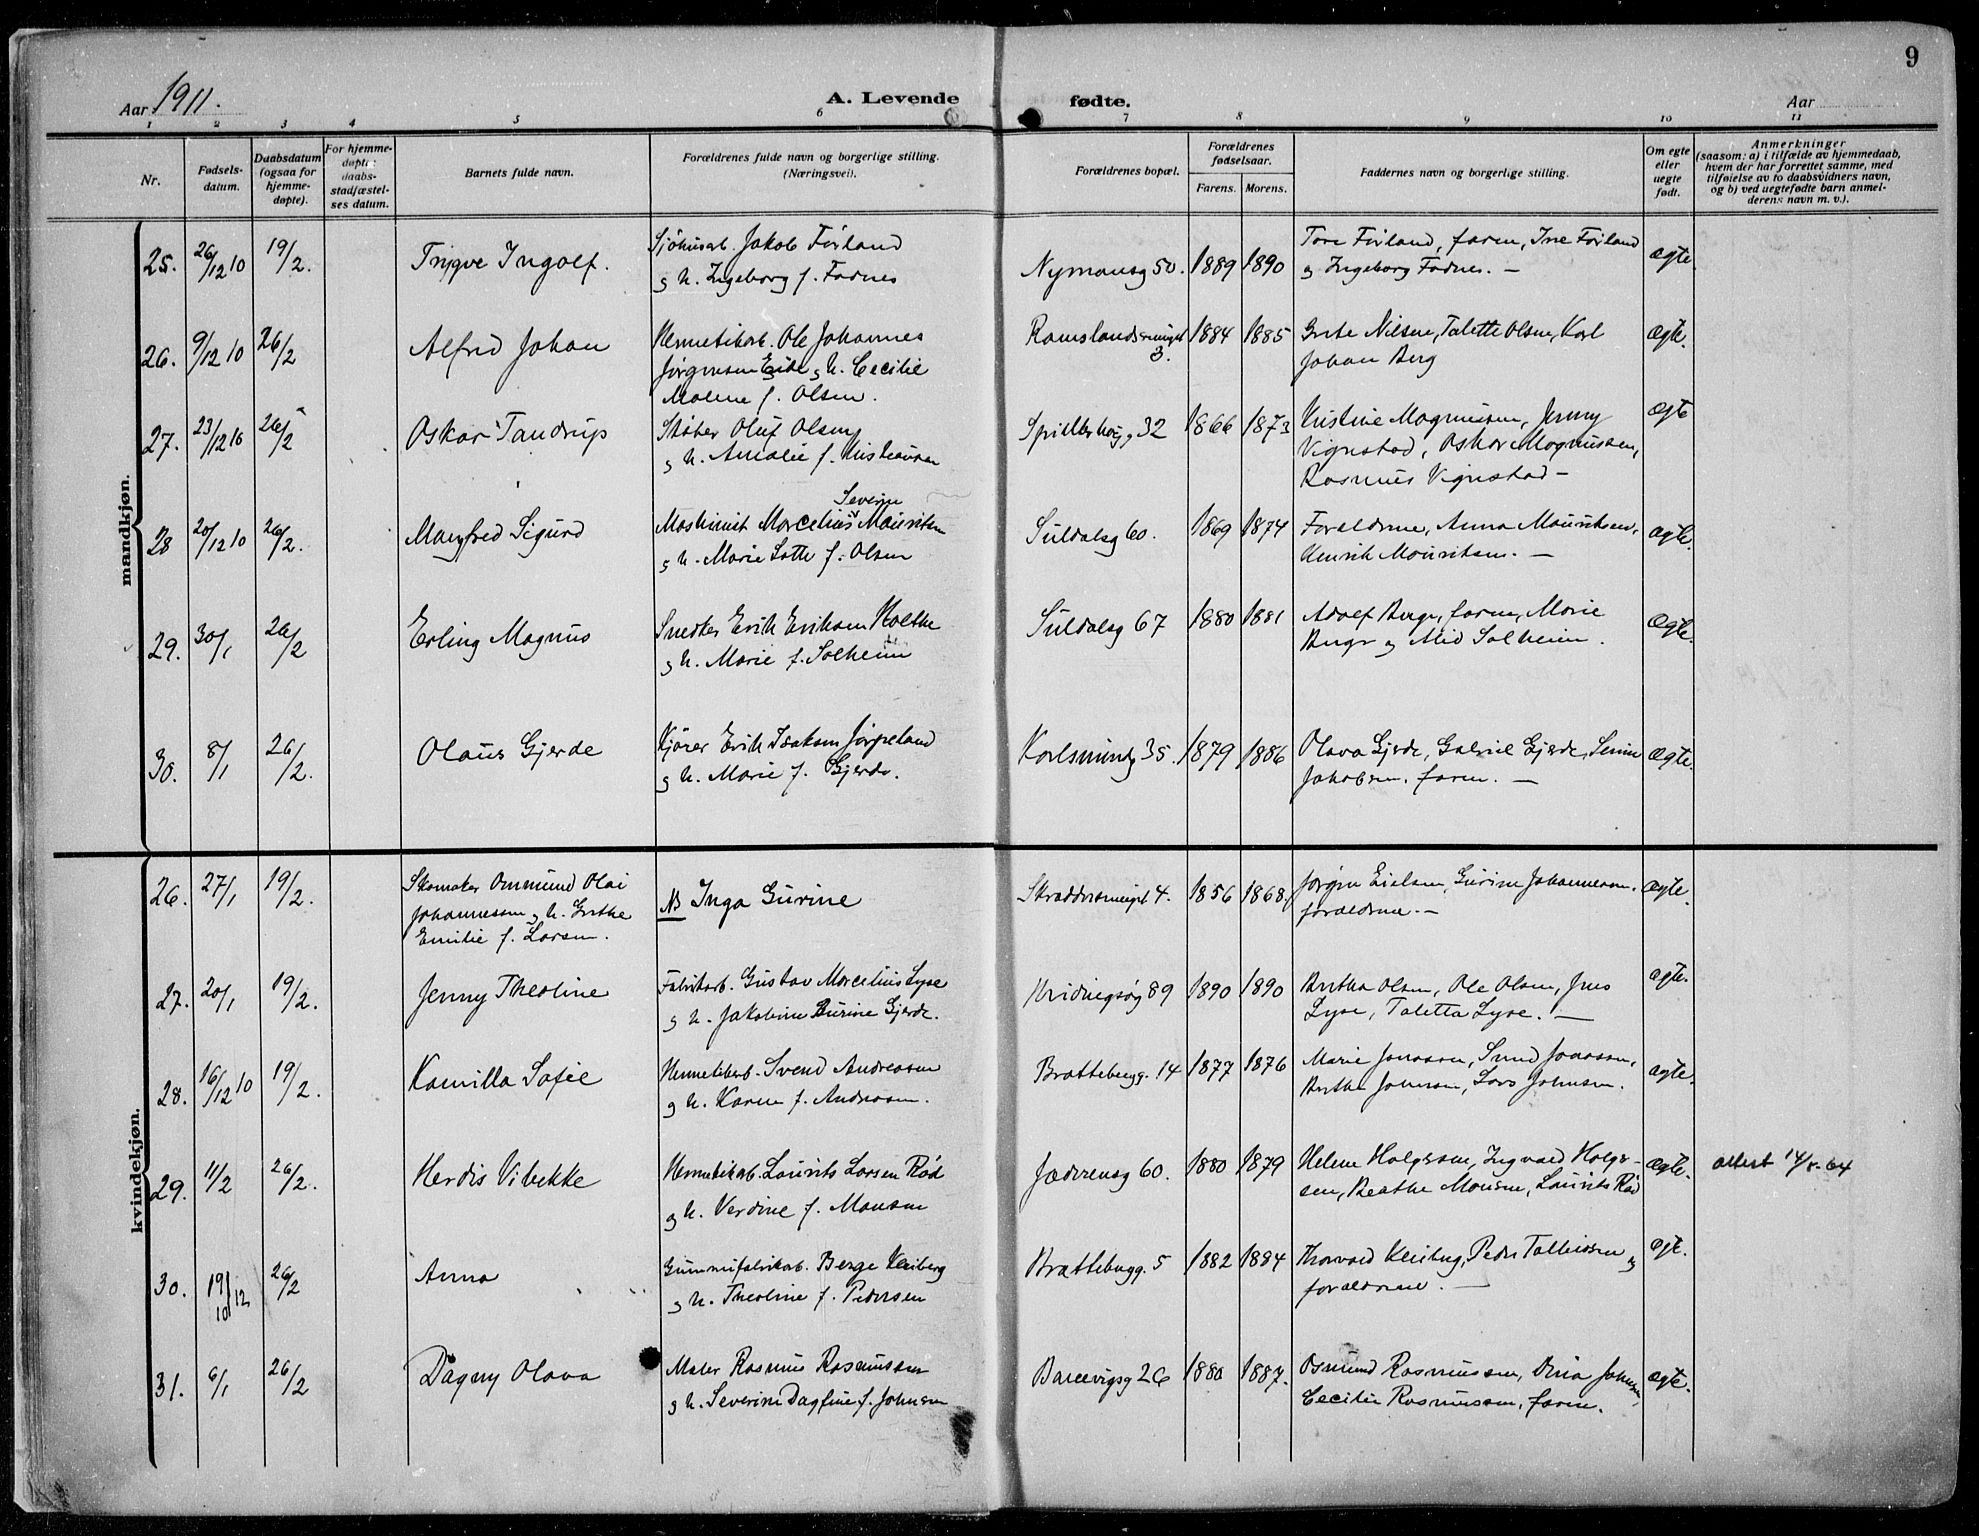 9
Aar 1911.
A. Levende fødte.
Aar
1 2 3 4 5 6 7 8 9 10 11
Nr.
Fødsels-
datum.
Daabsdatum
(ogsaa for
hjemme-
døpte).
For hjemme-
døpte:
daabs-
stadfæstel-
ses datum.
Barnets fulde navn.
Forældrenes fulde navn og borgerlige stilling.
(Næringsvei).
Forældrenes bopæl.
Forældrenes
fødselsaar.
Farens. Morens.
Faddernes navn og borgerlige stilling.
Om egte
eller
uegte
født.
Anmerkninger
(saasom: a) i tilfælde av hjemmedaab,
hvem der har forrettet samme, med
tilføielse av to daabsvidners navn,
og b) ved uegtefødte barn anmel-
derens navn m. v.).
mandkjøn.
25. 26/12 10 19/2. Trygve Ingolf.
Sjøhusarb. Jakob Förland
og h. Ingeborg f. Fadnes
Nymansg 50. 1889 1890
Tore Förland, faren, Ine Förland
og Ingeborg Fadnes. —
ægte
26. 9/12 10 26/2 Alfred Johan
Hermetikarb. Ole Johannes
Jørgensen Eide og h. Cecilie
Malene f. Olsen.
3. 1884 1885
Grete Nilsen, Talette Olsen, Karl
Johan Berg
ægte.
27. 23/12 10 26/2 Oskar Tandrup
Støber Oluf Olsen
og h. Amalie f. Kristiansen
32 1866 1873
Kristine Magnussen, Jenny
Vignestad, Oskar Magnussen,
Rasmus Vignestad —
ægte
28 20/12 10 26/2. Manfred Sigurd
Severin
Maskinist Marcelius Mauritsen
og h. Marie Lotte f. Olsen
Suldalsg 60. 1869 1874
Forældrene, Anna Mauritsen,
Henrik Mauritsen. —
ægte.
29. 30/1 26/2 Erling Magnus
Snedker Erik Eriksen Holthe
og h. Marie f. Solheim
Suldalsg 67 1880 1881
Adolf Berge, faren, Marie
Berge og Solheim.
Ægte.
30. 8/1 26/2. Olaus Gjerde
Kjører Erik Isaksen Jørpeland
og h. Marie f. Gjerde.
Karlsmindeg 35. 1879 1886
Olava Gjerde, Gabriel Gjerde,
Jakobsen, faren. —
Ægte.
kvindekjøn.
26. 27/1 19/2.
Skomaker Ommund Olai
Johannessen og h. Grethe
Emilie f. Larsen.
NB Inga Gurine
4. 1856 1868.
Jørgen Eielsen, Gurine Johannessen,
forældrene. —
ægte.
27. 20/1 19/2. Jenny Theoline
Fabrikarb. Gustav Marcelius Lyse
og h. Jakobine Gurine Gjerde.
Hvidingsøg 89 1890 1890
Berthe Olsen, Ole Olsen, Jens
Lyse, Taletta Lyse. —
ægte.
28. 16/12 10 19/2. Kamilla Sofie
Hermetikarb. Svend Andreassen
og h. Karen f. Andreasen.
Brattebergg. 14 1877 1876
Marie Jonassen, Svend Jonassen,
Berthe Johnsen, Lars Johnsen.
ægte.
29. 11/2 26/2. Herdis Vibekke
Hermetikarb. Laurits Larsen Rød
og h. Verdine f. Monsen
Jædrensg 60. 1880 1879
Helene Holgersen, Ingvald Holger-
sen, Beathe Monsen, Laurits Rød
ægte.
attest 14/8-64
30. 19/12 10 26/2 Anna
Gummifabrikab. Berge Kleiberg
og h. Theoline f. Pedersen
Brattebergg. 5 1882 1884
Thorvald Kleiberg, Peder Tollefsen og
forældrene. —
egt.
31. 6/1 26/2 Dagny Olava
Maler Rasmus Rasmussen
og h. Severine Dagfine f. Johnsen
Banevigsg 26 1880 1887.
Osmund Rasmussen, Dina Johnsen,
Cecilie Rasmussen, faren.
ægte.